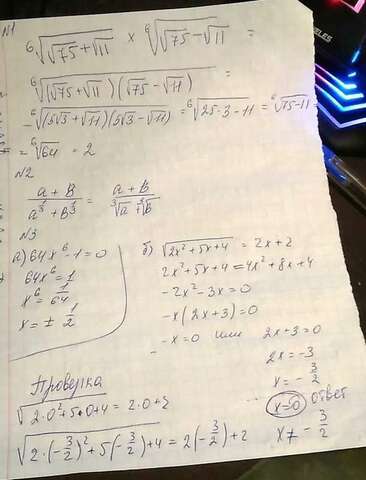 №1
⁶√(√75+√11) × ⁶√(√75-√11) =
⁶√((√75+√11)(√75-√11)) =
-⁶√((5√3+√11)(5√3-√11)) = ⁶√(25·3-11) = ⁶√(75-11) =
= ⁶√64 = 2
№2
(a+B)/(a^(1/3)+B^(1/3)) = (a+B)/(³√a+³√b)
№3
а) 64x⁶-1=0
64x⁶=1
x⁶=1/64
x=±1/2
б) √(2x²+5x+4) = 2x+2
2x²+5x+4=4x²+8x+4
-2x²-3x=0
-x(2x+3)=0
-x=0 или 2x+3=0
2x=-3
x=-3/2
Проверка
√(2·0²+5·0+4)=2·0+2
x=0 ответ
√(2·(-3/2)²+5(-3/2)+4)=2(-3/2)+2
x≠-3/2